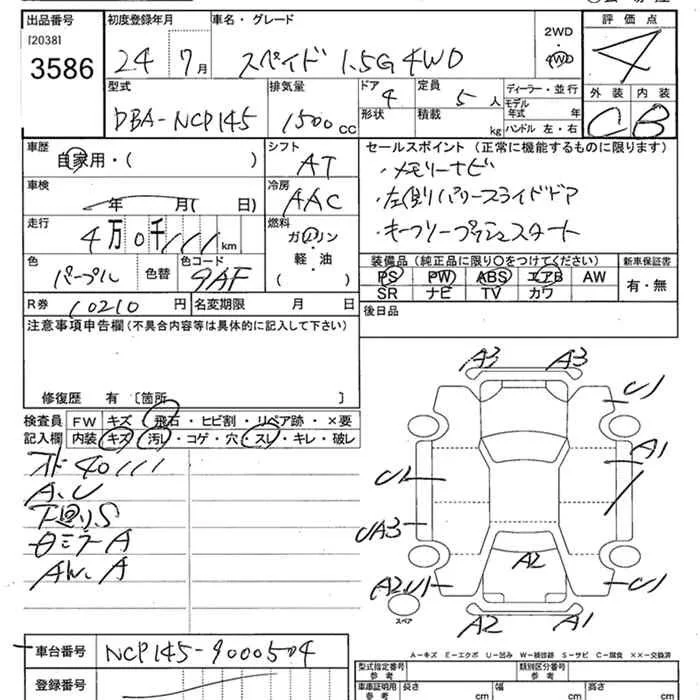 出品番号 初度登録年月 車名・グレード 評価点
[2038]
3586 24年 7月 スペイド 1.5G 4WD 2WD 4WD 4
外装 内装
C B
型式 排気量 ドア 定員 ディーラー・並行
DBA-NCP145 1500cc 4 5人 モデル年式 年
形状 積載 kg ハンドル 左・右
車歴 シフト セールスポイント (正常に機能するものに限ります)
自家用・( ) AT ・メモリーナビ
車検 冷房 ・左側パワースライドドア
年 月( 日) AAC ・キーフリープッシュスタート
走行 燃料
4万0千111km ガソリン・軽・油( )
色 色替 色コード 装備品(純正品に限り○をつけてください) 新車保証書
パープル 9AF PS PW ABS エアB AW 有・無
SR ナビ TV カワ
R券 10210円 名変期限 月 日 後日品
注意事項申告欄(不具合内容等は具体的に記入して下さい)
修復歴 有 〔箇所 〕
検査員 FW キズ・飛石・ヒビ割・リペア跡・×要
記入欄 内装 キズ・汚レ・コゲ・穴・スレ・キレ・破レ
オド40111
A、U
下廻りS
AW、A
A3 A3
U1
A1
U1
UA3
A2
A2U1 U1
スペア
A2 A1
A-キズ E-エクボ U-凹み W-補修跡 S-サビ C-腐食 XX-交換済
車台番号 NCP145-9000504
登録番号
型式指定番号 参考 類別区分番号
車庫証明用 参考 長さ cm 幅 cm 高さ cm